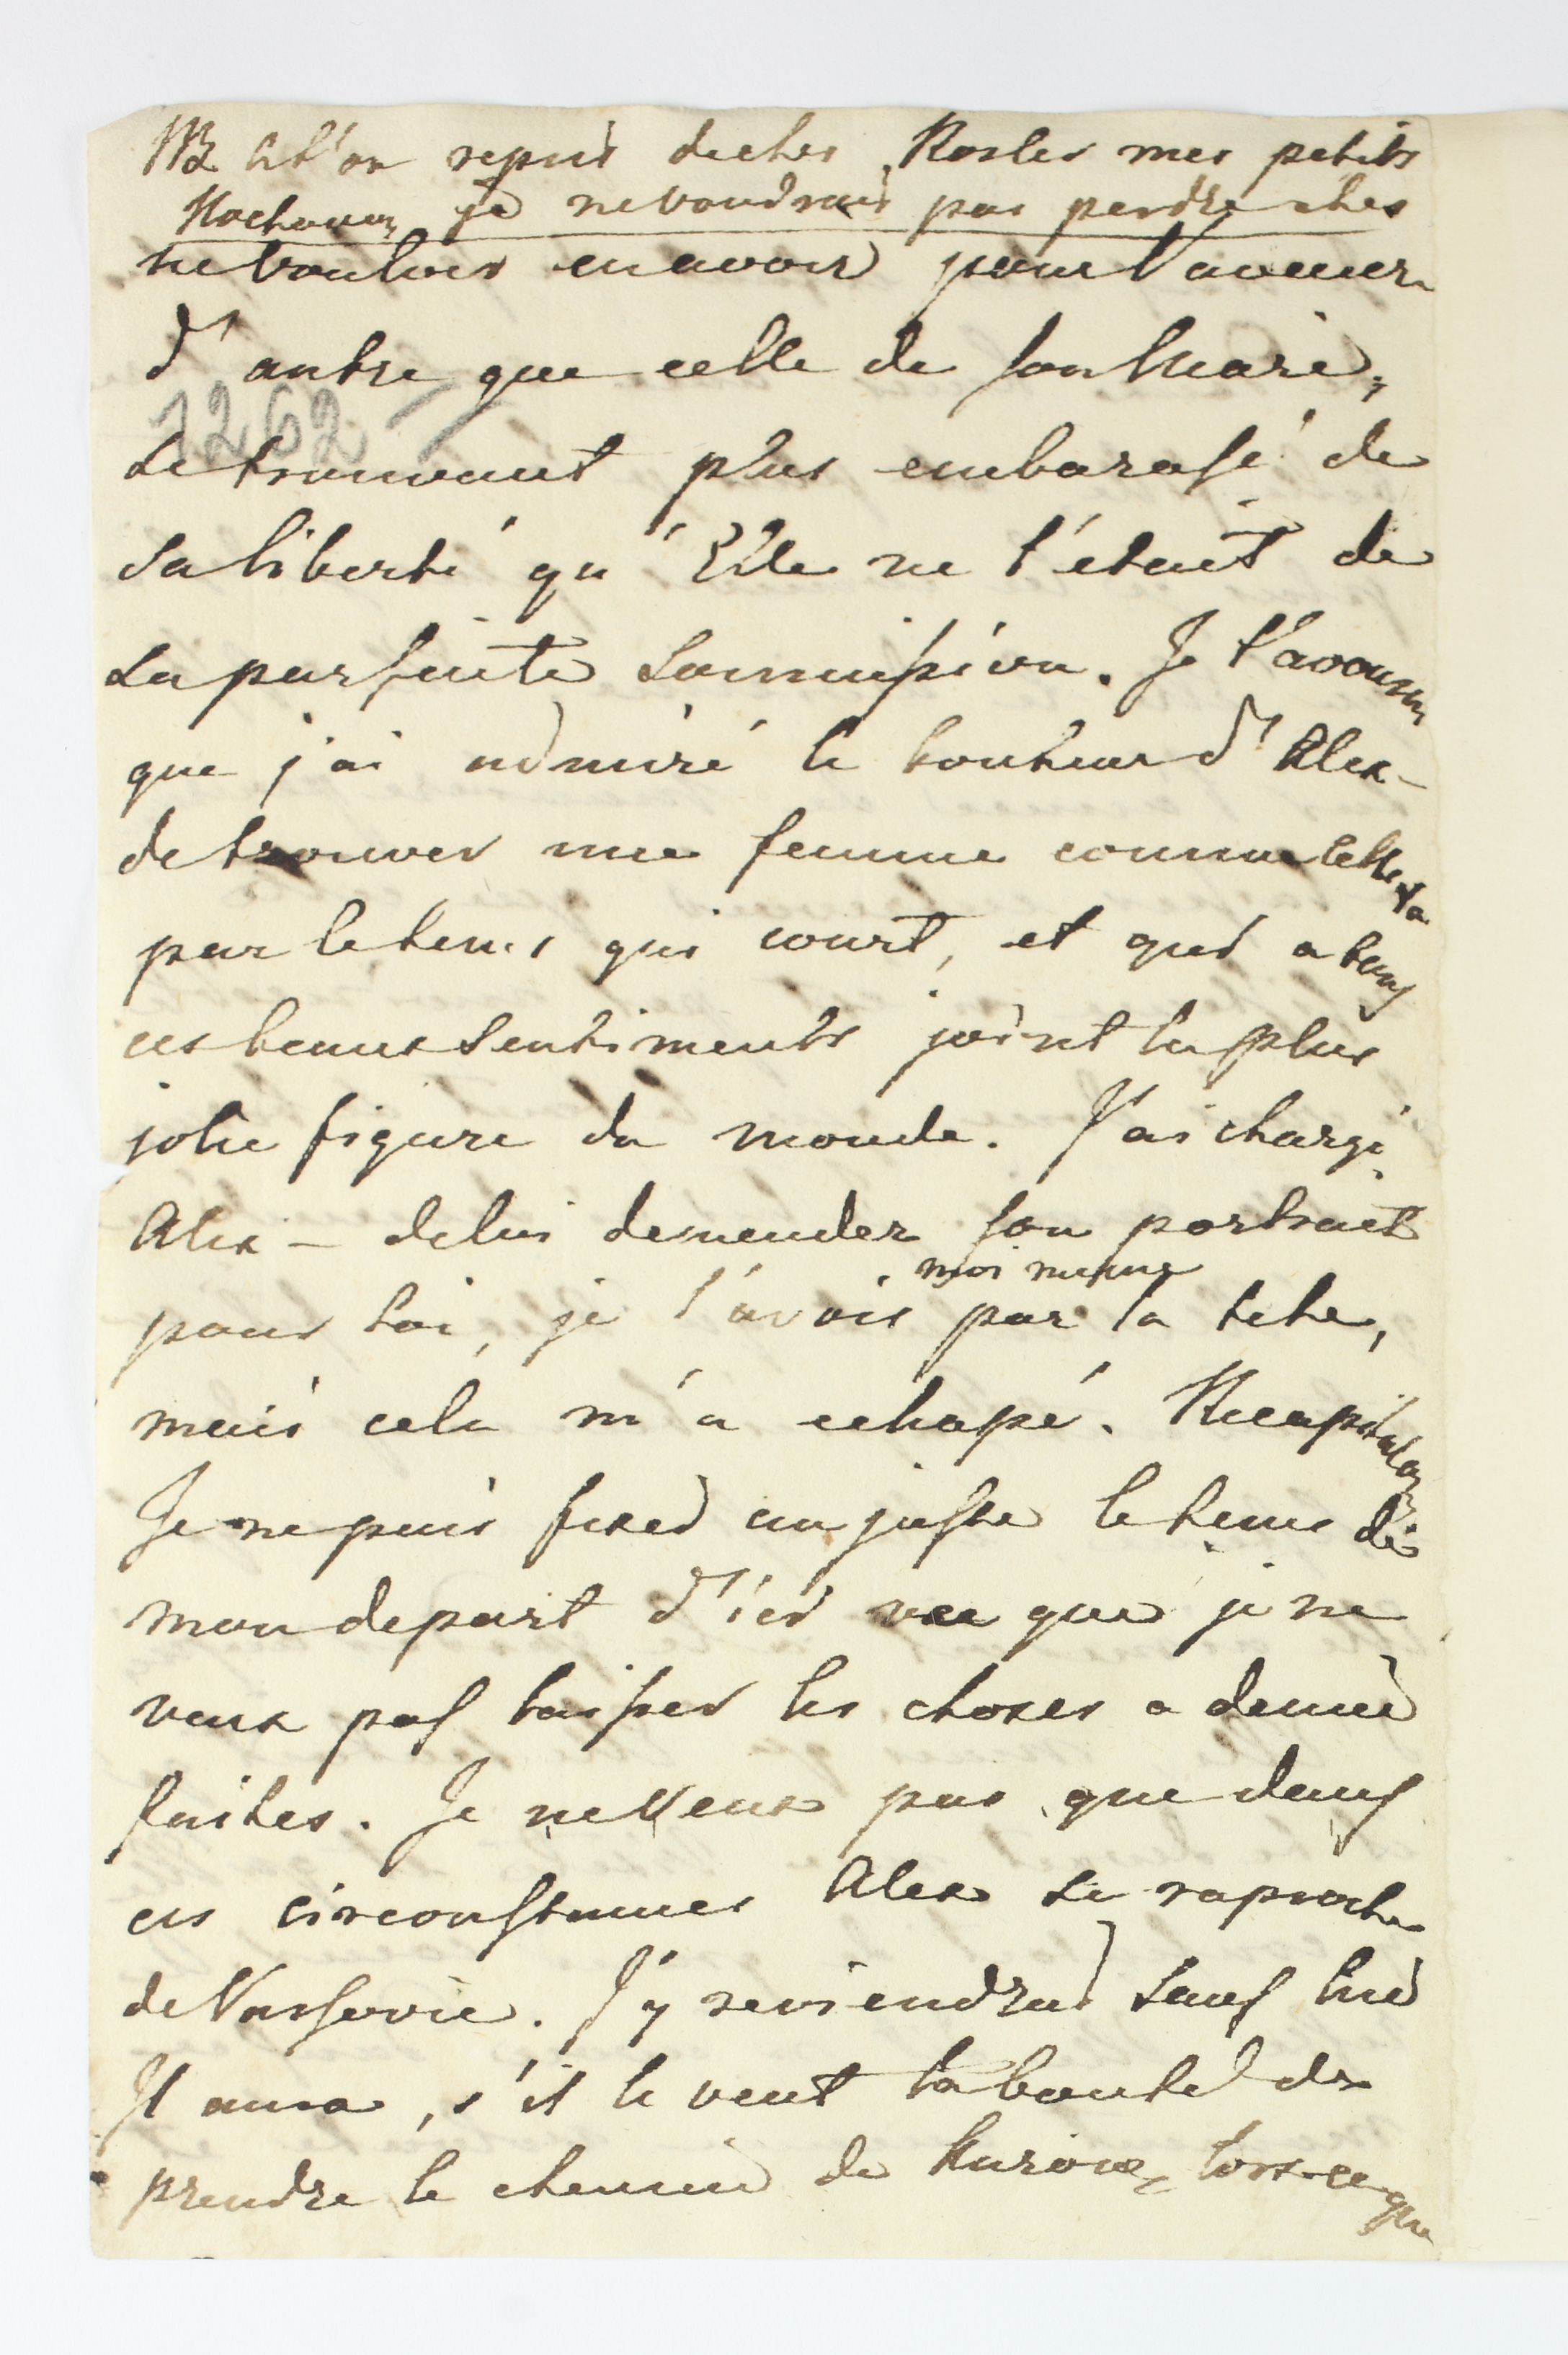 NB A t'on repris de chez Rosler mes petits
je ne voudrais pas perdre ches
ne vouloir en avoir pour l'avenir
d'autre que celle de son Mari,
se trouvant plus embarassé de
sa liberté qu'Elle ne l'était de
sa parfaite soumission. Je t'avoue
que j'ai admiré le bonheur d'Alex-
de trouver une femme comme celle la
par le tems qui court, et qui a tous
ces beaux sentiments joint la plus
jolie figure du monde. J'ai chargé
Alex - de lui demender son portrait
pour toi, je l'avois moi meme par la tete,
mais cela m'a echapé.
Je ne puis fixer au juste le tems de
mon depart d'ici vu que je ne
veux pas laisser les choses a demie
faites. Je ne Veux pas que dans
ces circonstances Alex se raproche
de Varsovie. J'y reviendrai sans lui
Il aura, s'il le veut la bonté de
prendre le chemin de Kurow, lors-ce que
1262